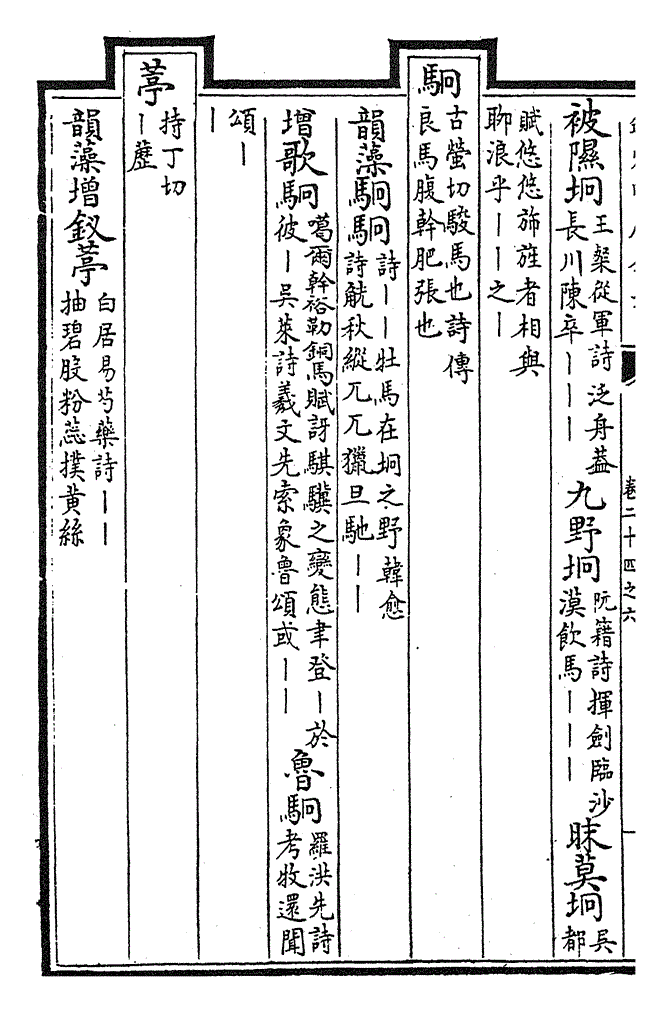 卷二十四之六
被隰坰 王粲從軍詩泛舟葢
長川陳卒｜｜｜
九野坰 阮籍詩揮劍臨沙
漠飲馬｜｜｜
眛莫坰 吳
都
賦悠悠斾旌者相與
聊浪乎｜｜之｜
駉 古螢切駿馬也詩傳
良馬腹幹肥張也
韻藻駉駉 詩｜｜牡馬在坰之野韓愈
詩觥秋縱兀兀獵旦馳｜｜
增歌駉 噶爾幹裕勒銅馬賦訝騏驥之變態聿登｜於
彼｜吳萊詩羲文先索象魯頌或｜｜
魯駉 羅洪先詩
考牧還聞
頌｜
｜
葶 持丁切
｜藶
韻藻增釵葶 白居易芍藥詩｜｜
抽碧股粉蕊撲黄絲